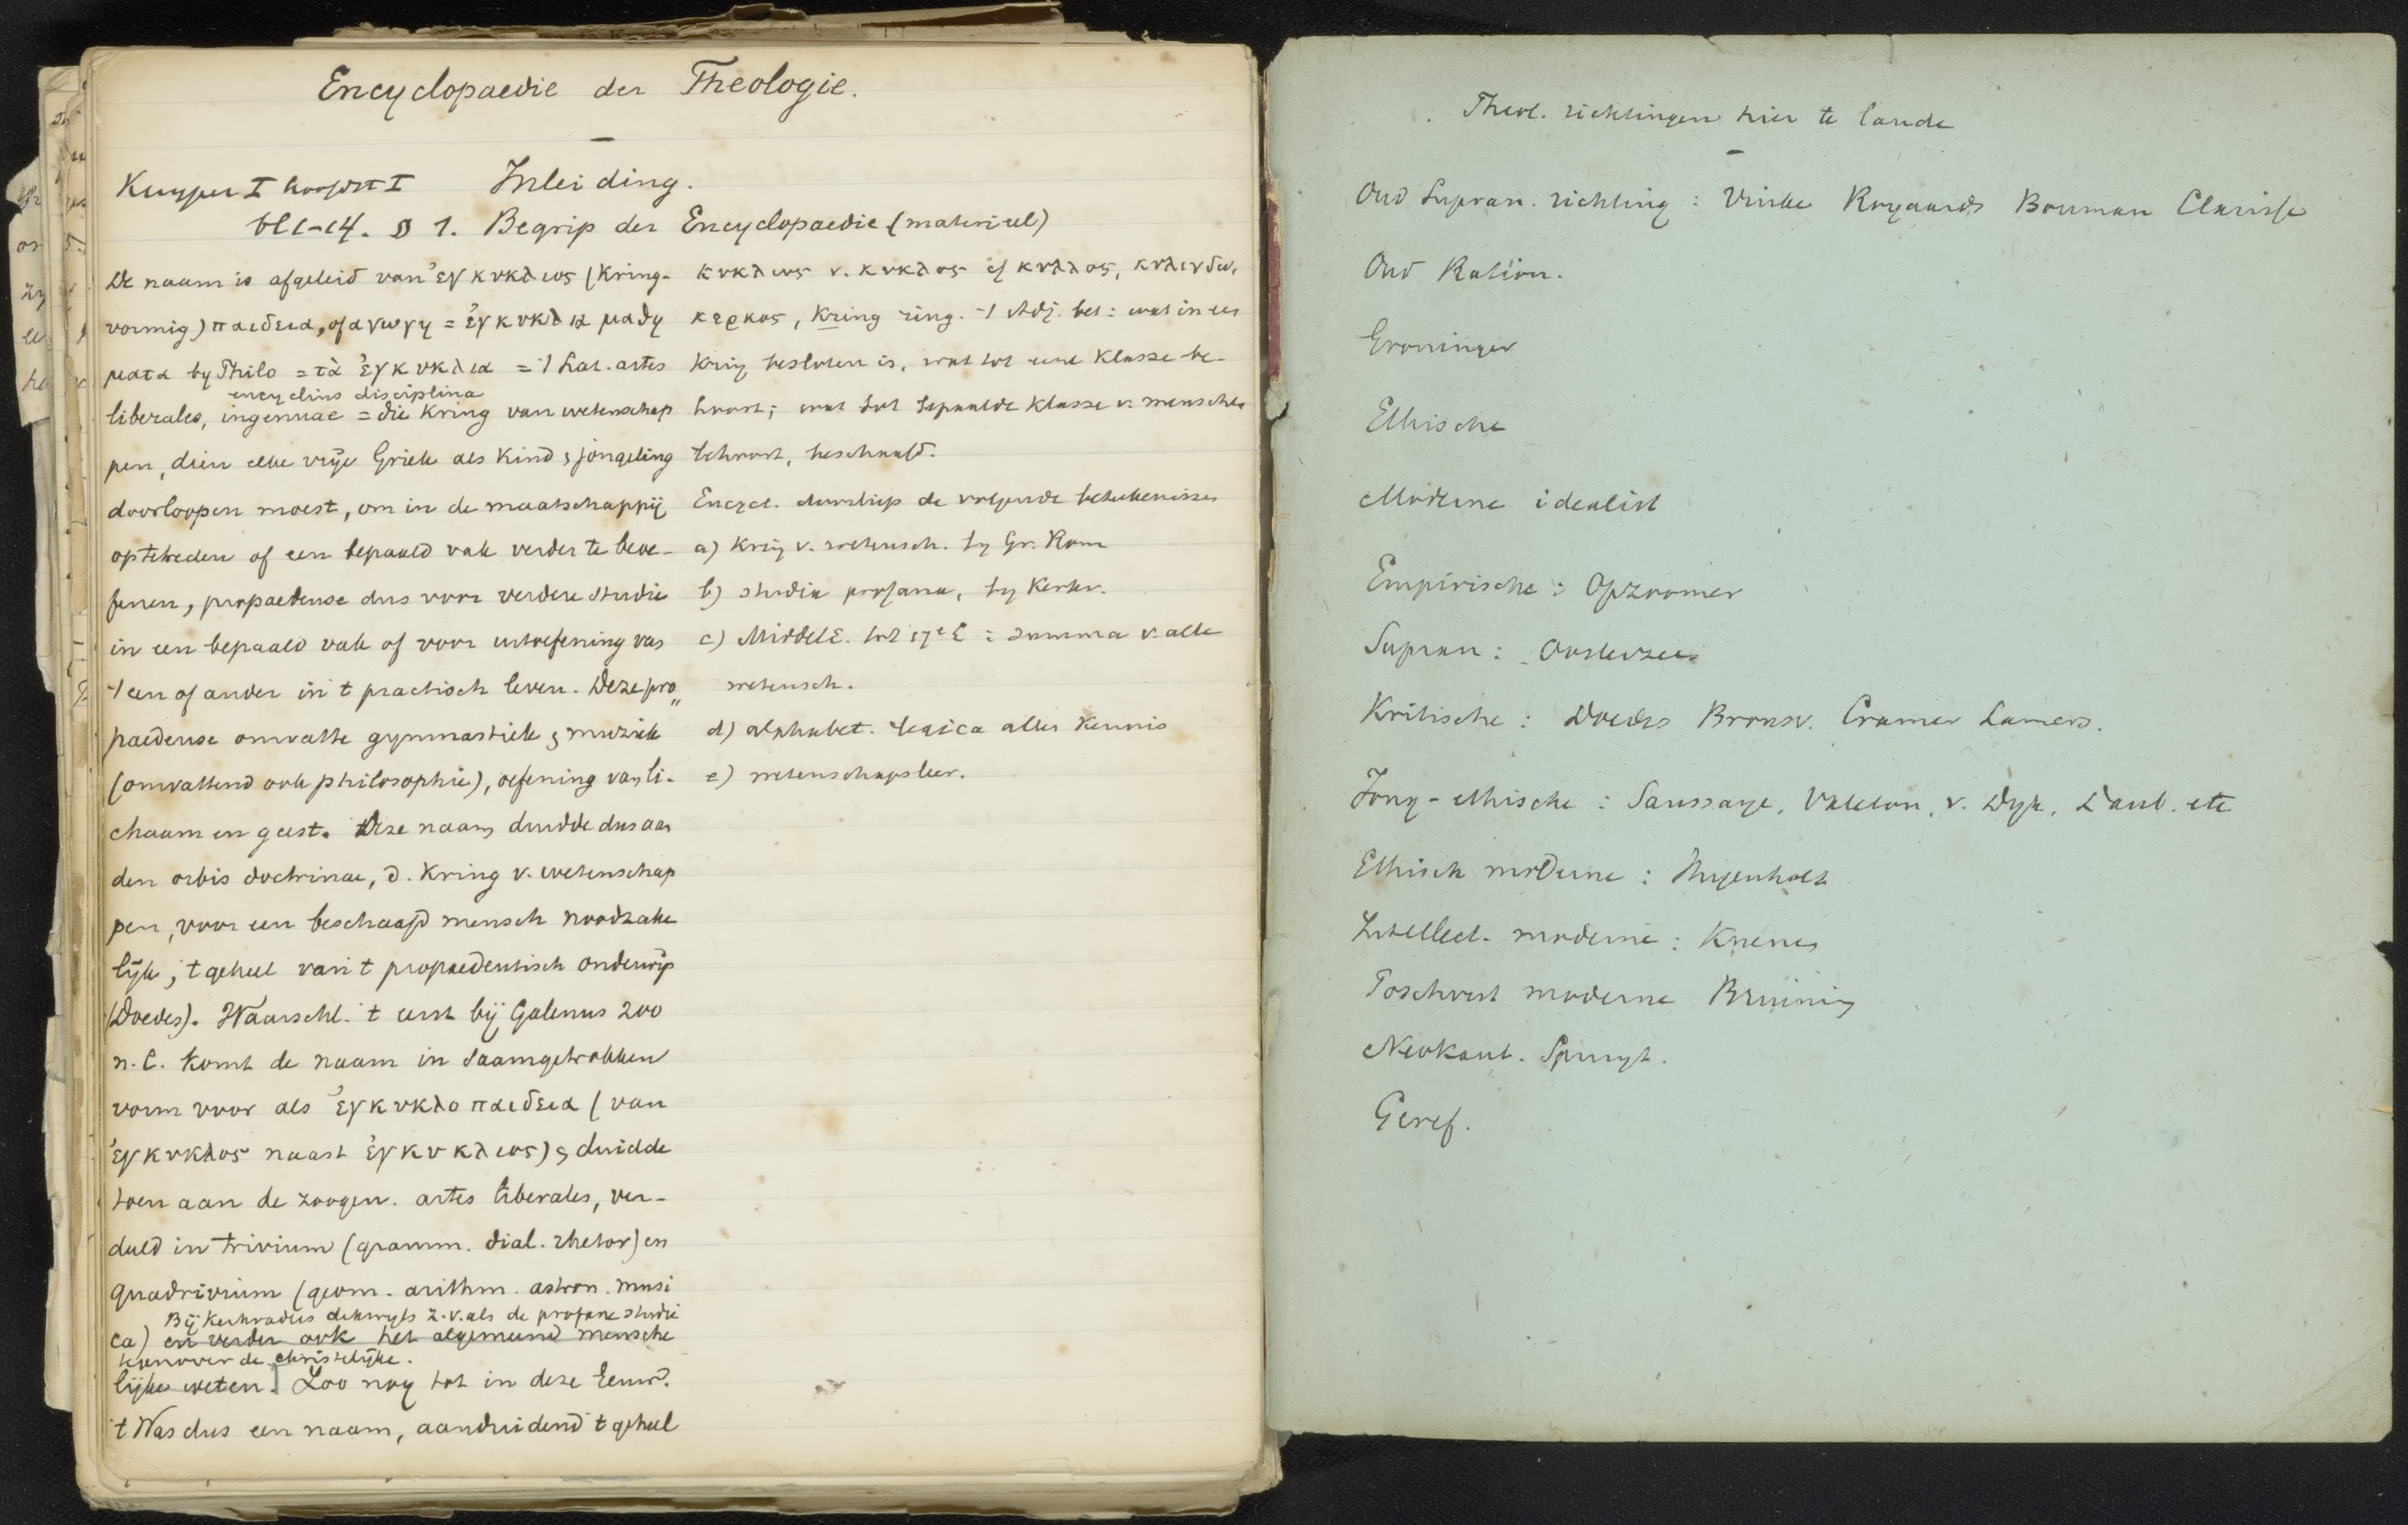 Encyclopaedie der Theologie.
Kuyper I hoofdst I Inleiding.
bl 1-14. § 1. Begrip der Encyclopaedie (materieel)
De naam is afgeleid van ἐγκυκλιος (Kring-
vormig) παιδεια, of αγωγη = ἐγκυκλια μαθη
ματα by Philo = τὰ ἐγκυκλια = 't Lat. artes
encyclius disciplina
liberales, ingenuae = die Kring van wetenschap
pen, dien elke vrije Griek als Kind & jongeling
doorloopen moest, om in de maatschappij
optetreden of een bepaald vak verder te beoe-
fenen, propaedeuse dus voor verdere studie
in een bepaald vak of voor uitoefening van
't een of ander in 't practisch leven. Deze pro„
paedeuse omvatte gymnastiek & muziek
(omvattend ook philosophie), oefening van li-
chaam en geest. Deze naam duidde dus aan
den orbis doctrinae, d. Kring v. wetenschap
pen, voor een beschaafd mensch noodzake
lijk; 't geheel van 't propaedeutisch onderwijs
(Doedes). Waarschl. 't eerst bij Galenus 200
n. C. komt de naam in saamgetrokken
vorm voor als ἐγκυκλοπαιδεια (van
ἐγκυκλος naast ἐγκυκλιος) & duidde
toen aan de zoogen. artes liberales, ver-
deeld in trivium (gramm. dial. rhetor) en
quadrivium (geom. arithm. astron. musi
Bij Kerkvaders dikwyls z. v. als de profane studie
ca) en verder ook het algemeend mensche
tegenover de christelijke.
lijke weten. Zoo nog tot in deze Eeuw.
't Was dus een naam, aanduidend 't geheel
κυκλιος v. κυκλος cf κυλλος, κυλινδω,
κερκος, Kring ring. 't Adj. bet: wat in een
Kring besloten is, wat tot eene Klasse be-
hoort; wat tot bepaalde Klasse v. menschen
behoort, beschaafd.
Encycl. doorliep de volgende beteekenissen
a) Kring v. wetensch. by Gr. Rom
b) studia profana, by Kerkv.
c) MiddelE. tot 17e E: summa v. alle
wetensch.
d) alphabet. lexica aller Kennis
e) wetenschapsleer.
Theol. richtingen hier te lande
Oud Supran. richting: Vinke Royaards Bouman Clarisse
Oud Ration.
Groninger
Ethische
Moderne idealist
Empirische: Opzoomer
Supran: Oosterzee
Kritische: Doedes Bronsv. Cramer Lamers.
Jong-ethische: Saussaye, Valeton, v. Dyk, Daub. etc
Ethisch moderne: Hugenholtz
Intellect. moderne: Kuenen
Rechts moderne Bruining
Neokant. Spruyt.
Geref.